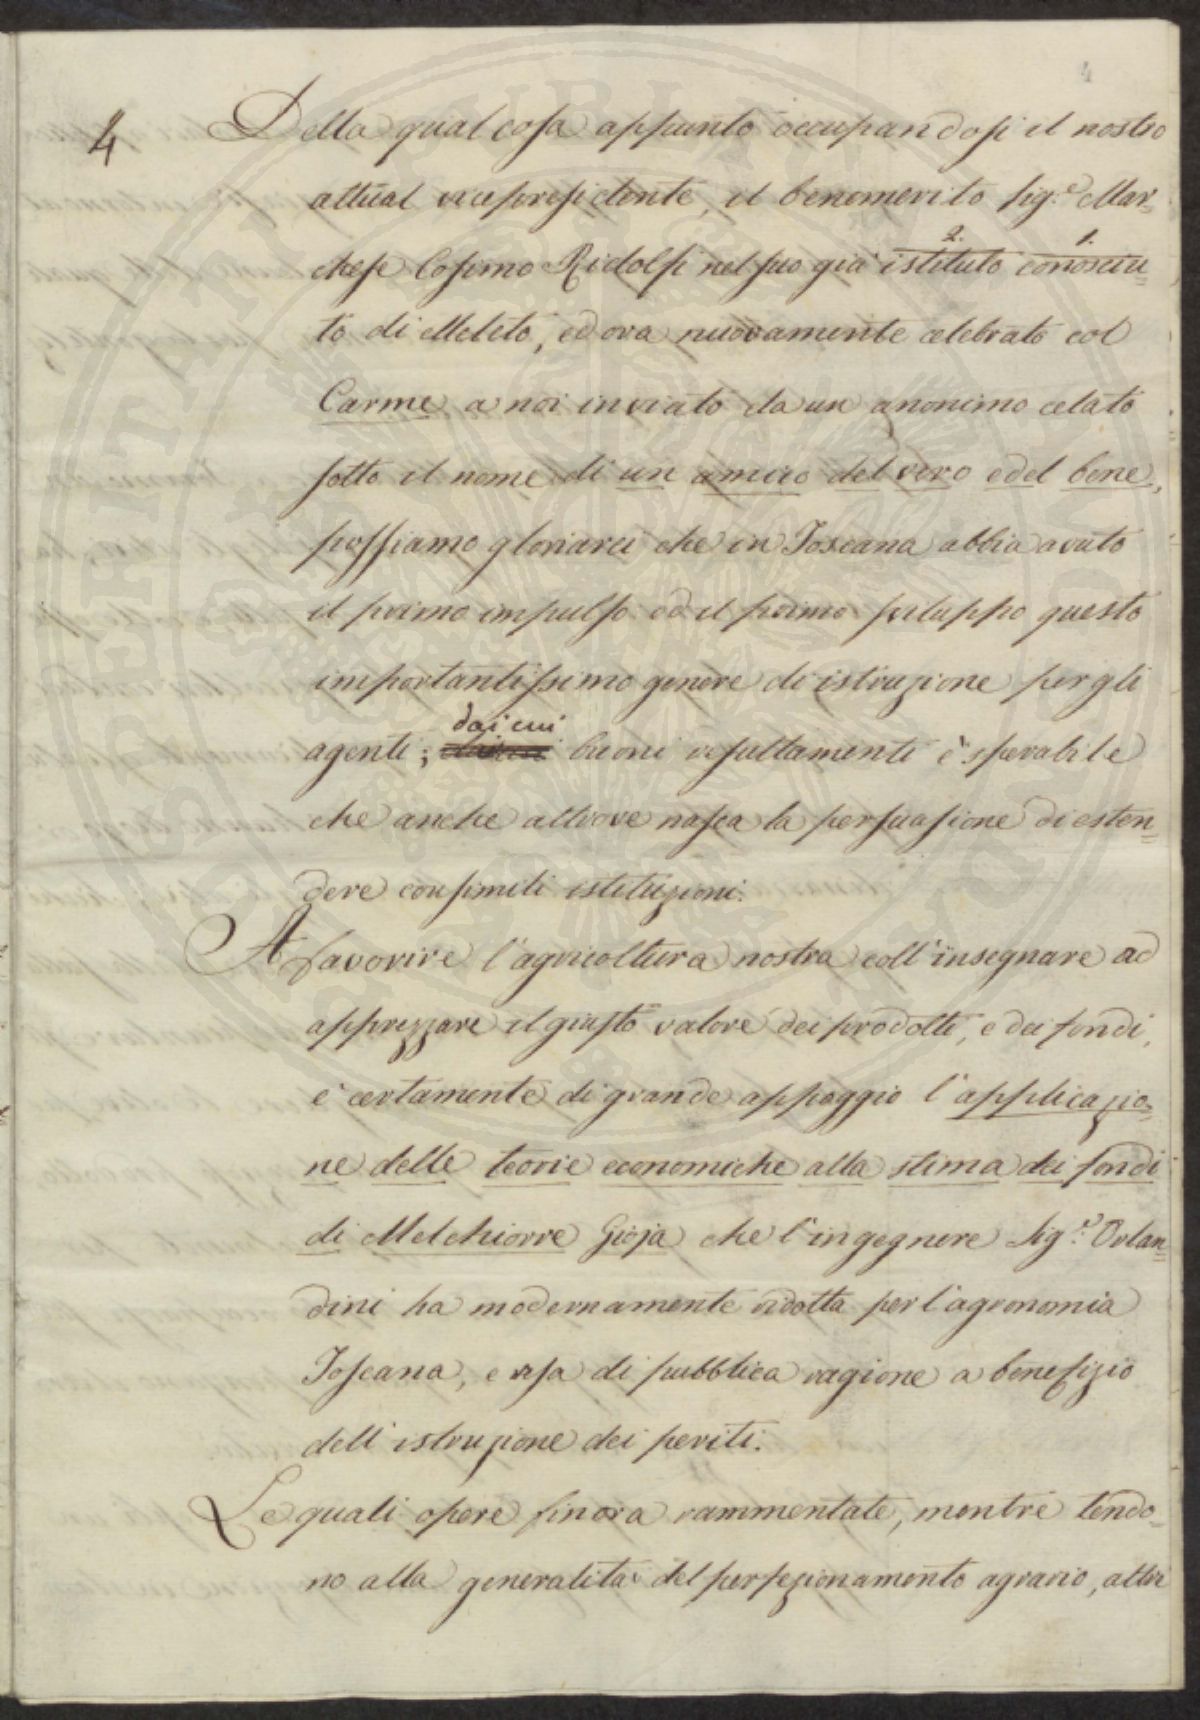 4
4
Della qual cosa appunto occupandosi il nostro
attual vicepresidente, il benemerito Sig.e Mar=
chese Cosimo Ridolfi nel suo già 2. istituto 1. conosciu=
to di Meleto, ed ora nuovamente celebrato col
Carme a noi inviato da un anonimo celato
sotto il nome di un amico del vero e del bene,
possiamo gloriarci che in Toscana abbia avuto
il primo impulso ed il primo sviluppo questo
importantissimo genere di istruzione per gli
agenti; dai cui buoni resultamenti è sperabile
che anche altrove nasca la persuasione di esten=
dere consimili istituzioni.
A favorire l'agricoltura nostra coll'insegnare ad
apprezzare il giusto valore dei prodotti, e dei fondi,
è certamente di grande appoggio l'applicazio=
ne delle teorie economiche alla stima dei fondi
di Melchiorre Gioja che l'ingegnere Sig.e Orlan=
dini ha modernamente ridotta per l'agronomia
Toscana, e resa di pubblica ragione a benefizio
dell'istruzione dei periti.
Le quali opere finora rammentate, mentre tendo=
no alla generalità del perfezionamento agrario, altri